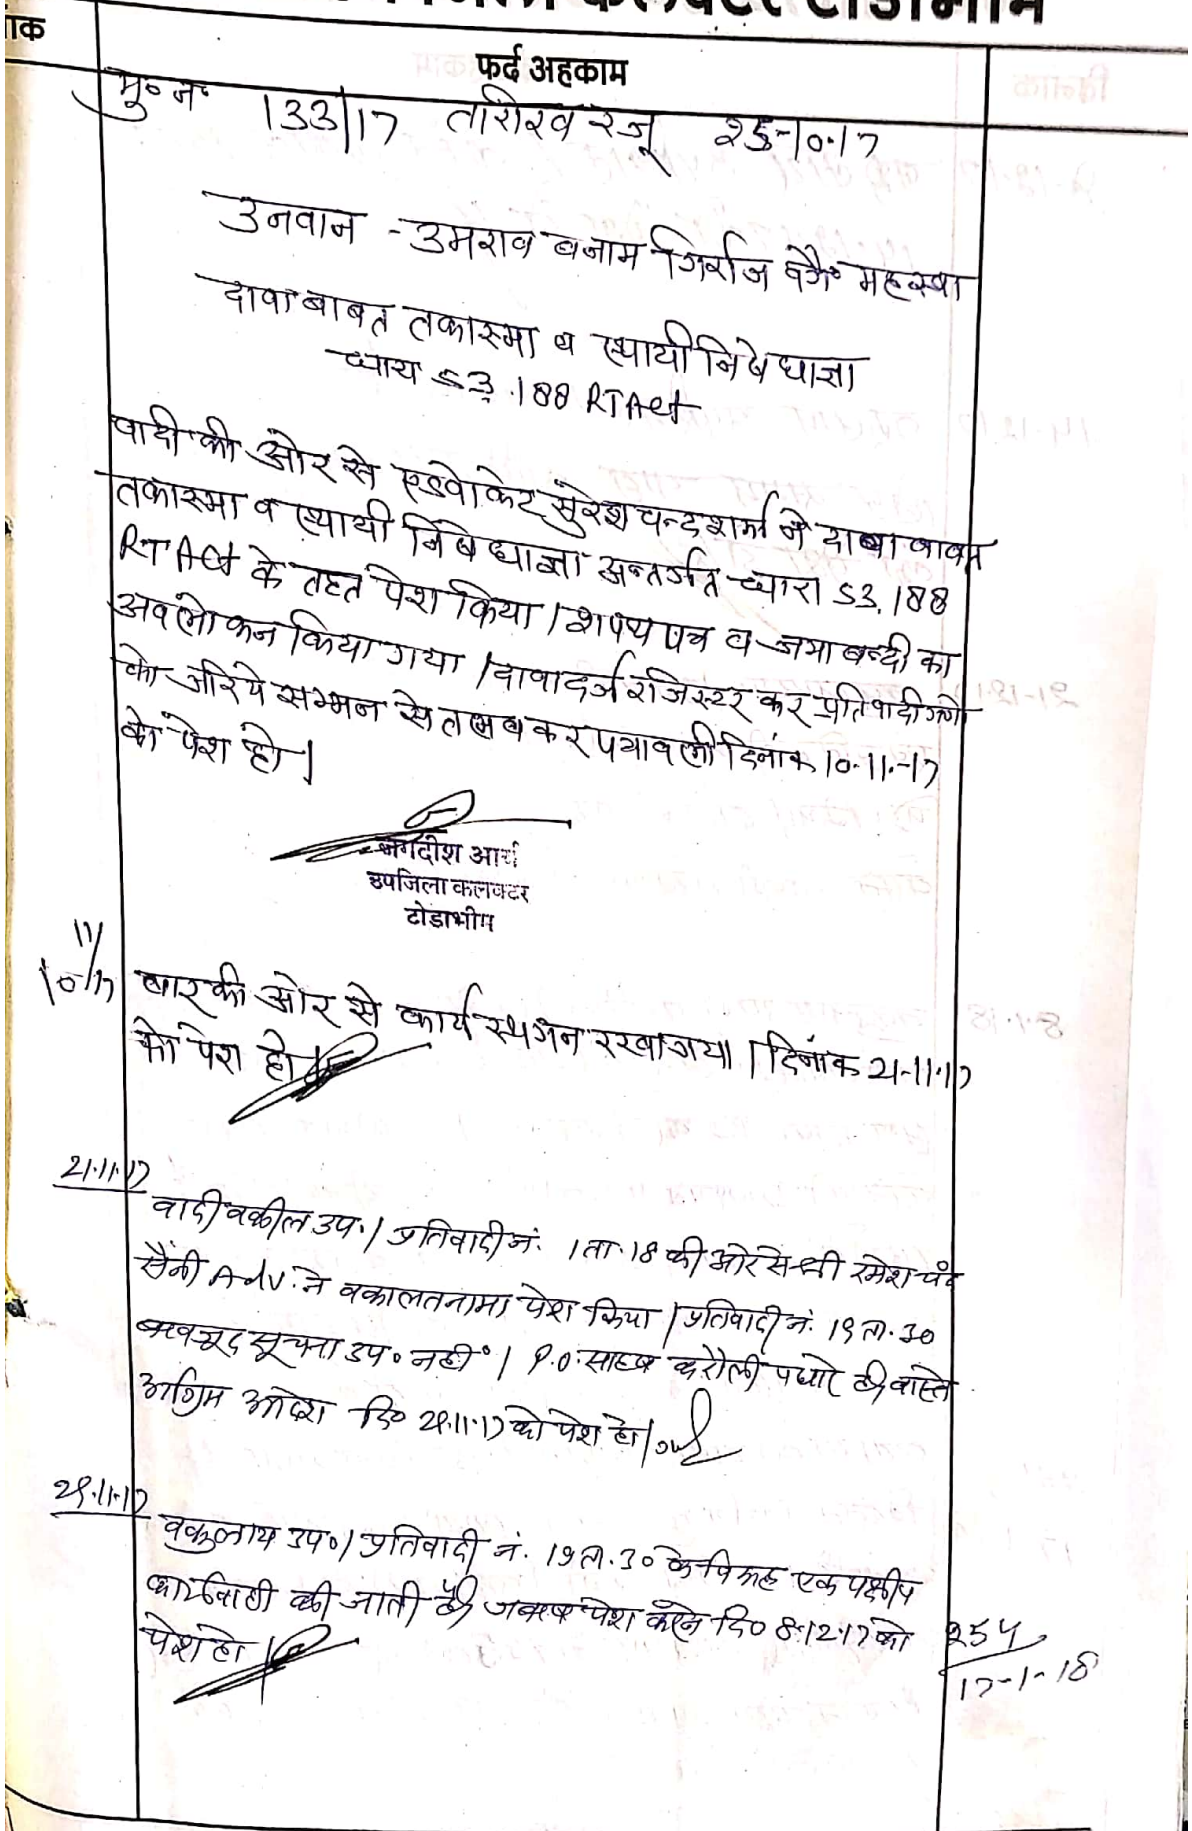 कलक्टर टोडाभीम
फर्द अहकाम
मु० न० 133/17 तारीख रजू 25-10-17
उनवान - उमराव बनाम गिर्राज वगै० महस्वा
दावा बाबत तकास्मा व स्थायी निषेधाज्ञा
धारा 53.188 RTAct
वादी की ओर से एडवोकेट सुरेश चन्द शर्मा ने दावा बाबत
तकास्मा व स्थायी निषेधाज्ञा अन्तर्गत धारा 53.188
RTAct के तहत पेश किया। शपथ पत्र व जमाबन्दी का
अवलोकन किया गया। दावा दर्ज रजिस्टर कर प्रतिवादीगणो
को जरिये सम्मन से तलब कर पत्रावली दिनांक 10-11-17
को पेश हो।
जगदीश आर्य
उपजिला कलक्टर
टोडाभीम
10/11/17 बार की ओर से कार्य स्थगन रखा गया। दिनांक 21-11-17
को पेश हो
21.11.17
वादी वकील उप.। प्रतिवादी नं. 1 ता. 18 की ओर से श्री रमेश चंद
सैनी Adv. ने वकालतनामा पेश किया। प्रतिवादी नं. 19 ता. 30
बावजूद सूचना उप० नहीं०। P.O. साहब करौली पधारे है वास्ते
अग्रिम आदेश दि० 29.11.17 को पेश हो।
29.11.17
वकुलाय उप०। प्रतिवादी नं. 19 ता. 30 के विरूद्ध एक पक्षीय
कार्यवाही की जाती है जवाब पेश करने दि० 8.12.17 को
पेश हो
254
17-1-18